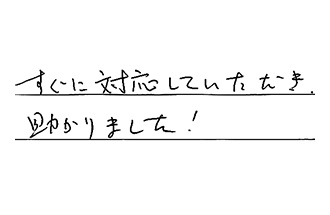 すぐに対応していただき、
助かりました!